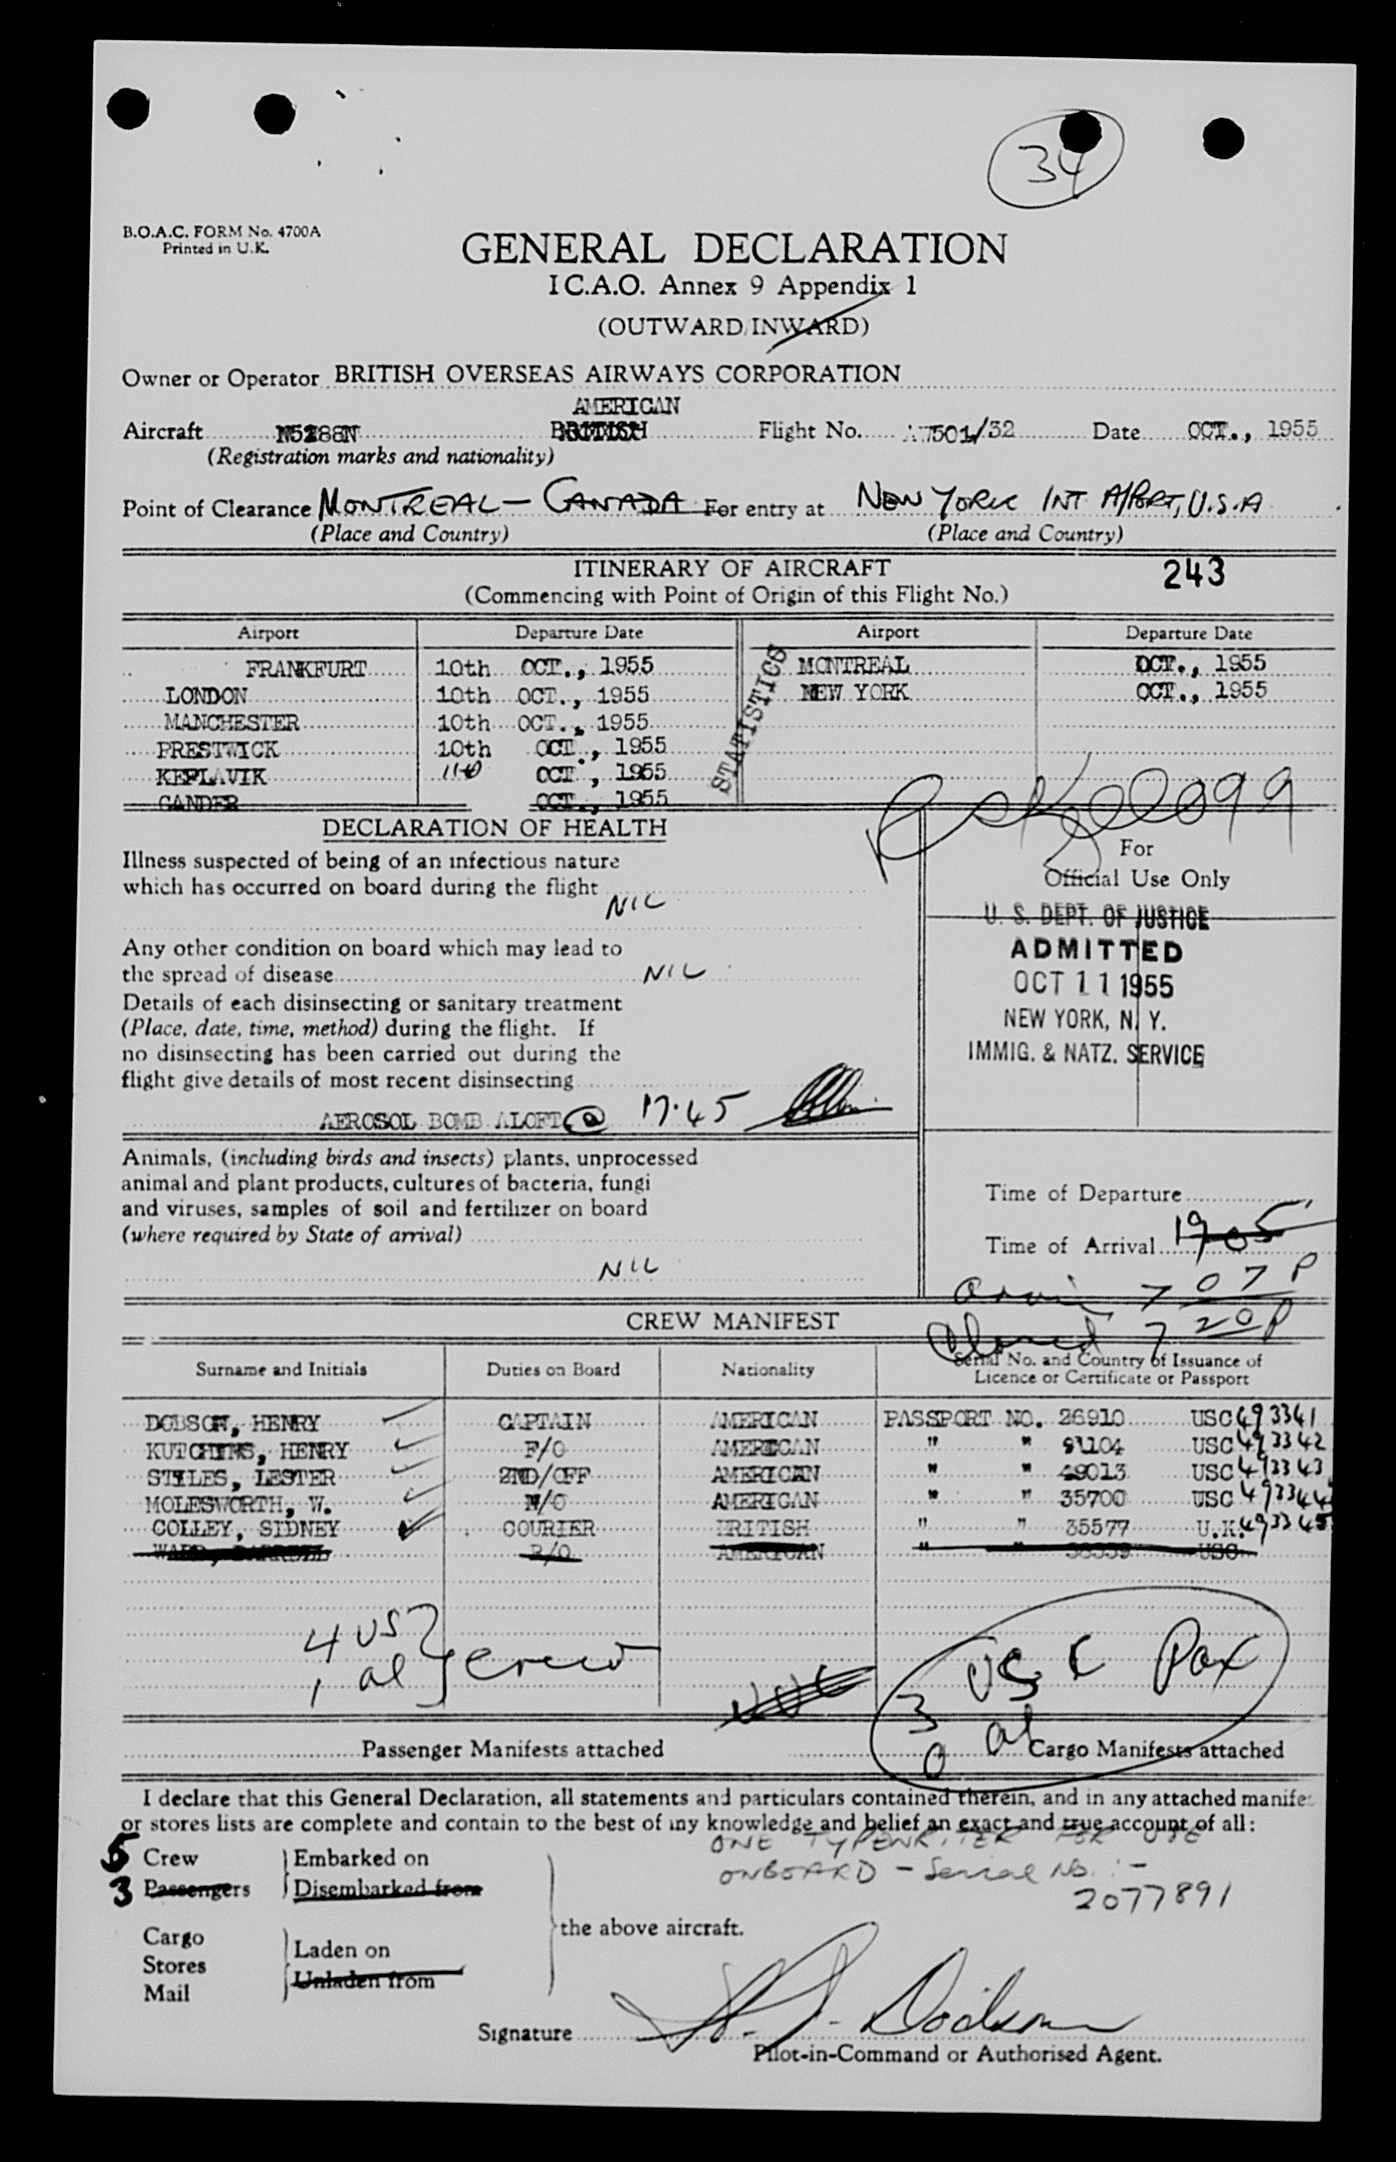 34
B.O.A.C. FORM No. 4700A
Printed in U.K.
GENERAL DECLARATION
I C.A.O. Annex 9 Appendix 1
(OUTWARD/INWARD)
Owner or Operator BRITISH OVERSEAS AIRWAYS CORPORATION
AMERICAN
Aircraft N5288N BRITISH Flight No. 7501/32 Date OCT., 1955
(Registration marks and nationality)
Point of Clearance MONTREAL - CANADA For entry at NEW YORK INT A/PORT, U.S.A
(Place and Country) (Place and Country)
ITINERARY OF AIRCRAFT 243
(Commencing with Point of Origin of this Flight No.)
Airport Departure Date Airport Departure Date
FRANKFURT 10th OCT., 1955 MONTREAL OCT., 1955
LONDON 10th OCT., 1955 NEW YORK OCT., 1955
MANCHESTER 10th OCT., 1955
PRESTWICK 10th OCT., 1955
KEFLAVIK 11th OCT., 1955
GANDER OCT., 1955
STATISTICS
DECLARATION OF HEALTH
Illness suspected of being of an infectious nature
which has occurred on board during the flight
NIL
Any other condition on board which may lead to
the spread of disease NIL
Details of each disinsecting or sanitary treatment
(Place, date, time, method) during the flight. If
no disinsecting has been carried out during the
flight give details of most recent disinsecting
AEROSOL BOMB ALOFT @ 17.45
For
Official Use Only
U. S. DEPT. OF JUSTICE
ADMITTED
OCT 11 1955
NEW YORK, N. Y.
IMMIG. & NATZ. SERVICE
Animals, (including birds and insects) plants, unprocessed
animal and plant products, cultures of bacteria, fungi
and viruses, samples of soil and fertilizer on board
(where required by State of arrival)
NIL
Time of Departure
Time of Arrival 1905
7 07 P
7 20 P
CREW MANIFEST
Surname and Initials Duties on Board Nationality Serial No. and Country of Issuance of
Licence or Certificate or Passport
DOBSON, HENRY CAPTAIN AMERICAN PASSPORT NO. 26910 USC 493341
KUTCHINS, HENRY F/O AMERICAN " " 91104 USC 493342
STILES, LESTER 2ND/OFF AMERICAN " " 49013 USC 493343
MOLESWORTH, W. N/O AMERICAN " " 35700 USC 493344
COLLEY, SIDNEY COURIER BRITISH " " 35577 U.K. 493345
R/O AMERICAN " " USC
4 US
1 al } crew
3 USC Pax
0 al
Passenger Manifests attached Cargo Manifests attached
I declare that this General Declaration, all statements and particulars contained therein, and in any attached manife
or stores lists are complete and contain to the best of my knowledge and belief an exact and true account of all:
ONE TYPEWRITER FOR USE
ONBOARD - Serial No. :-
2077891
5 Crew Embarked on
3 Passengers Disembarked from
the above aircraft.
Cargo
Stores Laden on
Mail Unladen from
Signature
Pilot-in-Command or Authorised Agent.